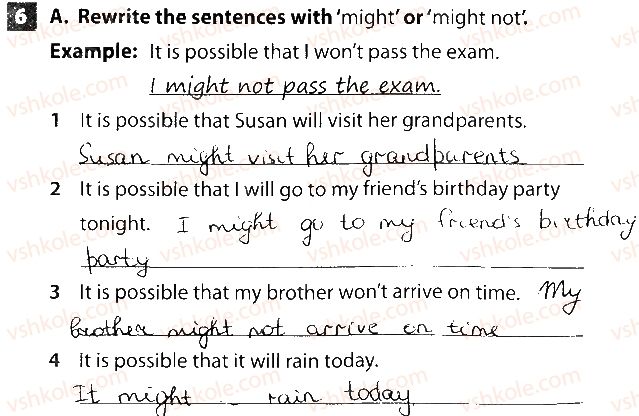 6 A. Rewrite the sentences with 'might' or 'might not'.
Example: It is possible that I won't pass the exam.
I might not pass the exam.
1 It is possible that Susan will visit her grandparents.
Susan might visit her grandparents
2 It is possible that I will go to my friend's birthday party
tonight. I might go to my friend's birthday
party
3 It is possible that my brother won't arrive on time. My
brother might not arrive on time
4 It is possible that it will rain today.
It might rain today